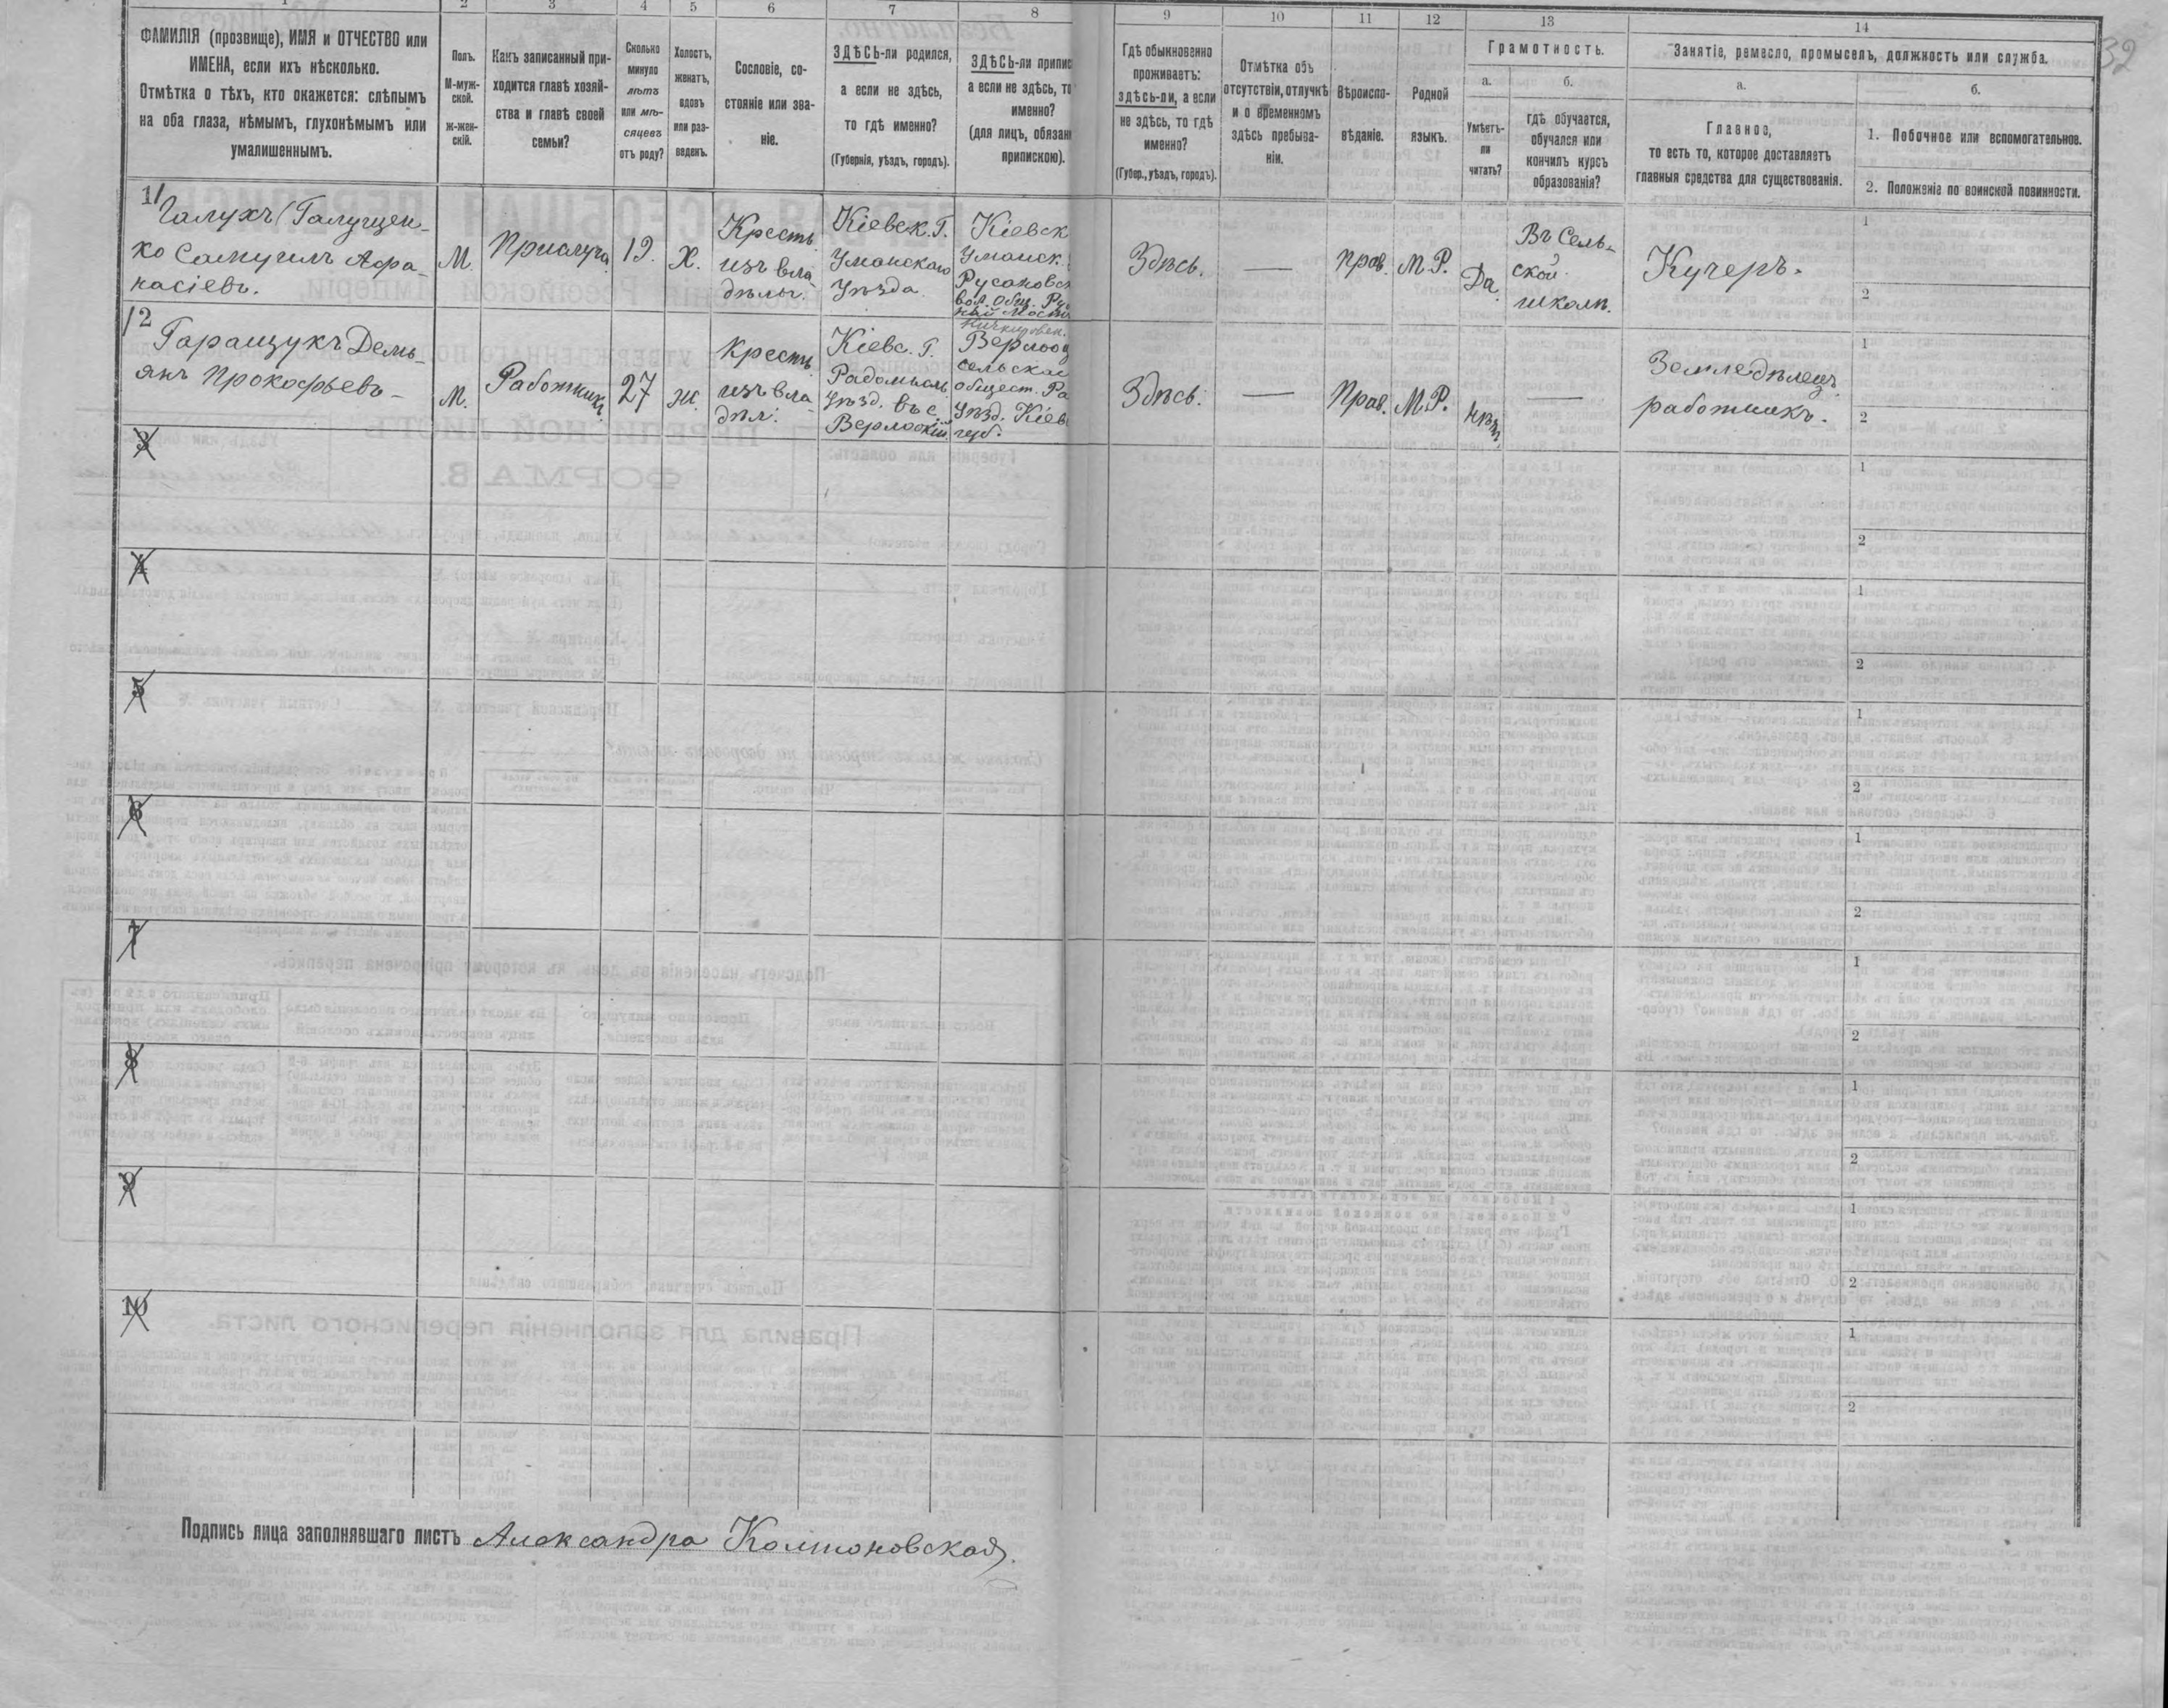 1 2 3 4 5 6 7 8 9 10 11 12 13 14
32
ФАМИЛІЯ (прозвище), ИМЯ и ОТЧЕСТВО или
ИМЕНА, если ихъ нѣсколько.
Отмѣтка о тѣхъ, кто окажется: слѣпымъ
на оба глаза, нѣмымъ, глухонѣмымъ или
умалишеннымъ.
Полъ.
М-муж-
ской.
ж-жен-
скій.
Какъ записанный при-
ходится главѣ хозяй-
ства и главѣ своей
семьи?
Сколько
минуло
лѣтъ
или мѣ-
сяцевъ
отъ роду?
Холостъ,
женатъ,
вдовъ
или раз-
веденъ.
Сословіе, со-
стояніе или зва-
ніе.
ЗДѢСЬ-ли родился,
а если не здѣсь,
то гдѣ именно?
(Губернія, уѣздъ, городъ).
ЗДѢСЬ-ли припис
а если не здѣсь, то
именно?
(для лицъ, обязан
припискою).
Гдѣ обыкновенно
проживаетъ:
здѣсь-ли, а если
не здѣсь, то гдѣ
именно?
(Губер., уѣздъ, городъ).
Отмѣтка объ
отсутствіи, отлучкѣ
и о временномъ
здѣсь пребыва-
ніи.
Вѣроиспо-
вѣданіе.
Родной
языкъ.
Грамотность.
а.
Умѣетъ-
ли
читать?
б.
гдѣ обучается,
обучался или
кончилъ курсъ
образованія?
Занятіе, ремесло, промыселъ, должность или служба.
а.
Главное,
то есть то, которое доставляетъ
главныя средства для существованія.
б.
1. Побочное или вспомогательное.
2. Положеніе по воинской повинности.
1
Галухъ (Галущен-
ко Самуилъ Афа-
насіевъ.
М.
Прислуга
19.
Х.
Крестъ.
изъ вла
дѣльч.
Кіевск. Г.
Уманскаго
Уѣзда.
Кіевск
Уманск.
Русановск
вол. Общ.
Здѣсь.
—
прав.
М.Р.
Да
Въ Сель-
ской
школѣ.
Кучеръ.
1
2
2
Гаращукъ Демь-
янъ Прокофьевъ-
М.
Работникъ
27
ж.
Крестъ.
изъ вла
дѣл.
Кіевс. Г.
Радомысл.
Уѣзд. въ с.
сельское
общест. Ра
Уѣзд. Кіев
губ.
Здѣсь.
—
Прав.
М.Р.
Нѣтъ
—
Земледѣлецъ
работникъ.
1
2
3
1
2
4
1
2
5
1
2
6
1
2
7
1
2
8
1
2
9
1
2
10
1
2
Подпись лица заполнявшаго листъ Александра Колтоновская.